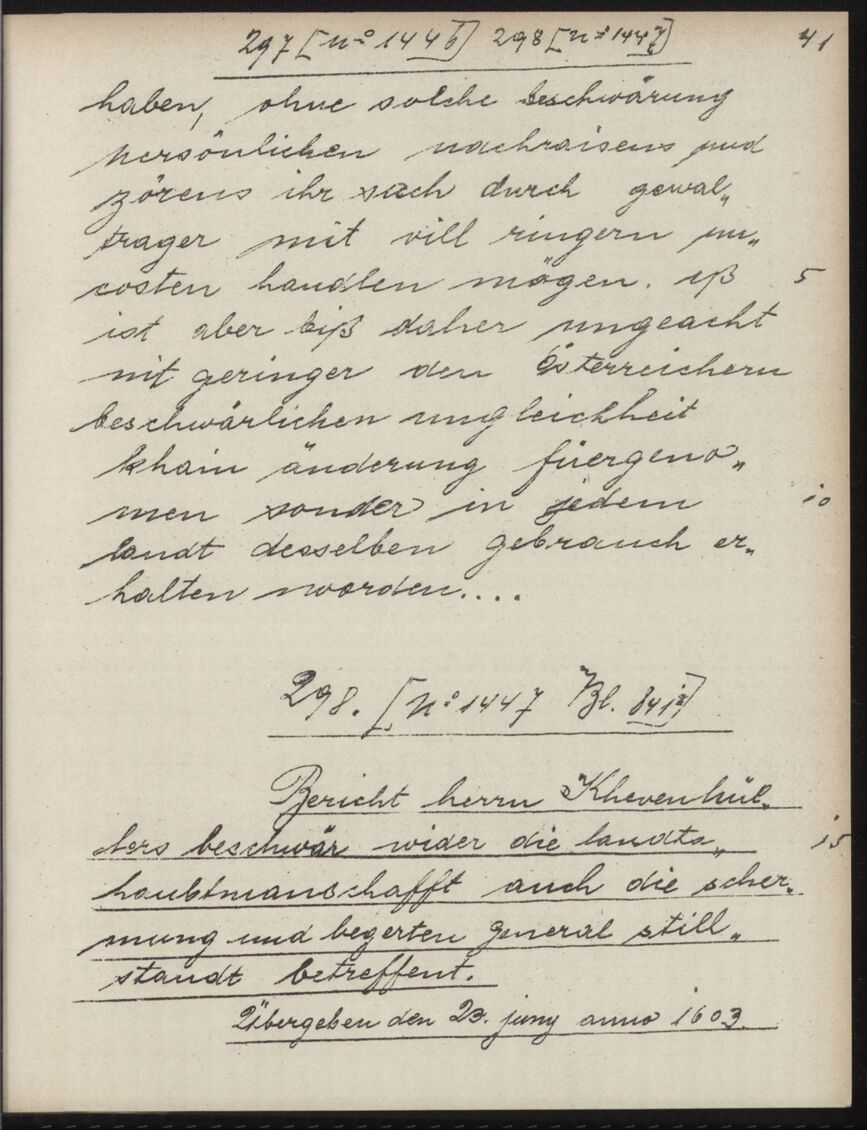 297 [No 1446] 298 [No 1447] 41
haben, ohne solche beschwärung
persönlichen nachraisens und
zörens ihr sach durch gewal„
trager mit vill ringern un„
costen handlen mögen. eß 5
ist aber biß daher ungeacht
nit geringer den Österreichern
beschwärlichen ungleichheit
khain änderung füergeno„
men sonder in jedem 10
landt desselben gebrauch er„
halten worden....
298. [No 1447 Bl. 841]
Bericht herrn Khevenhül„
lers beschwär wider die landts„ 15
haubtmanschafft auch die scher„
mung und begerten general still„
standt betreffent.
Übergeben den 23. juny anno 1603.